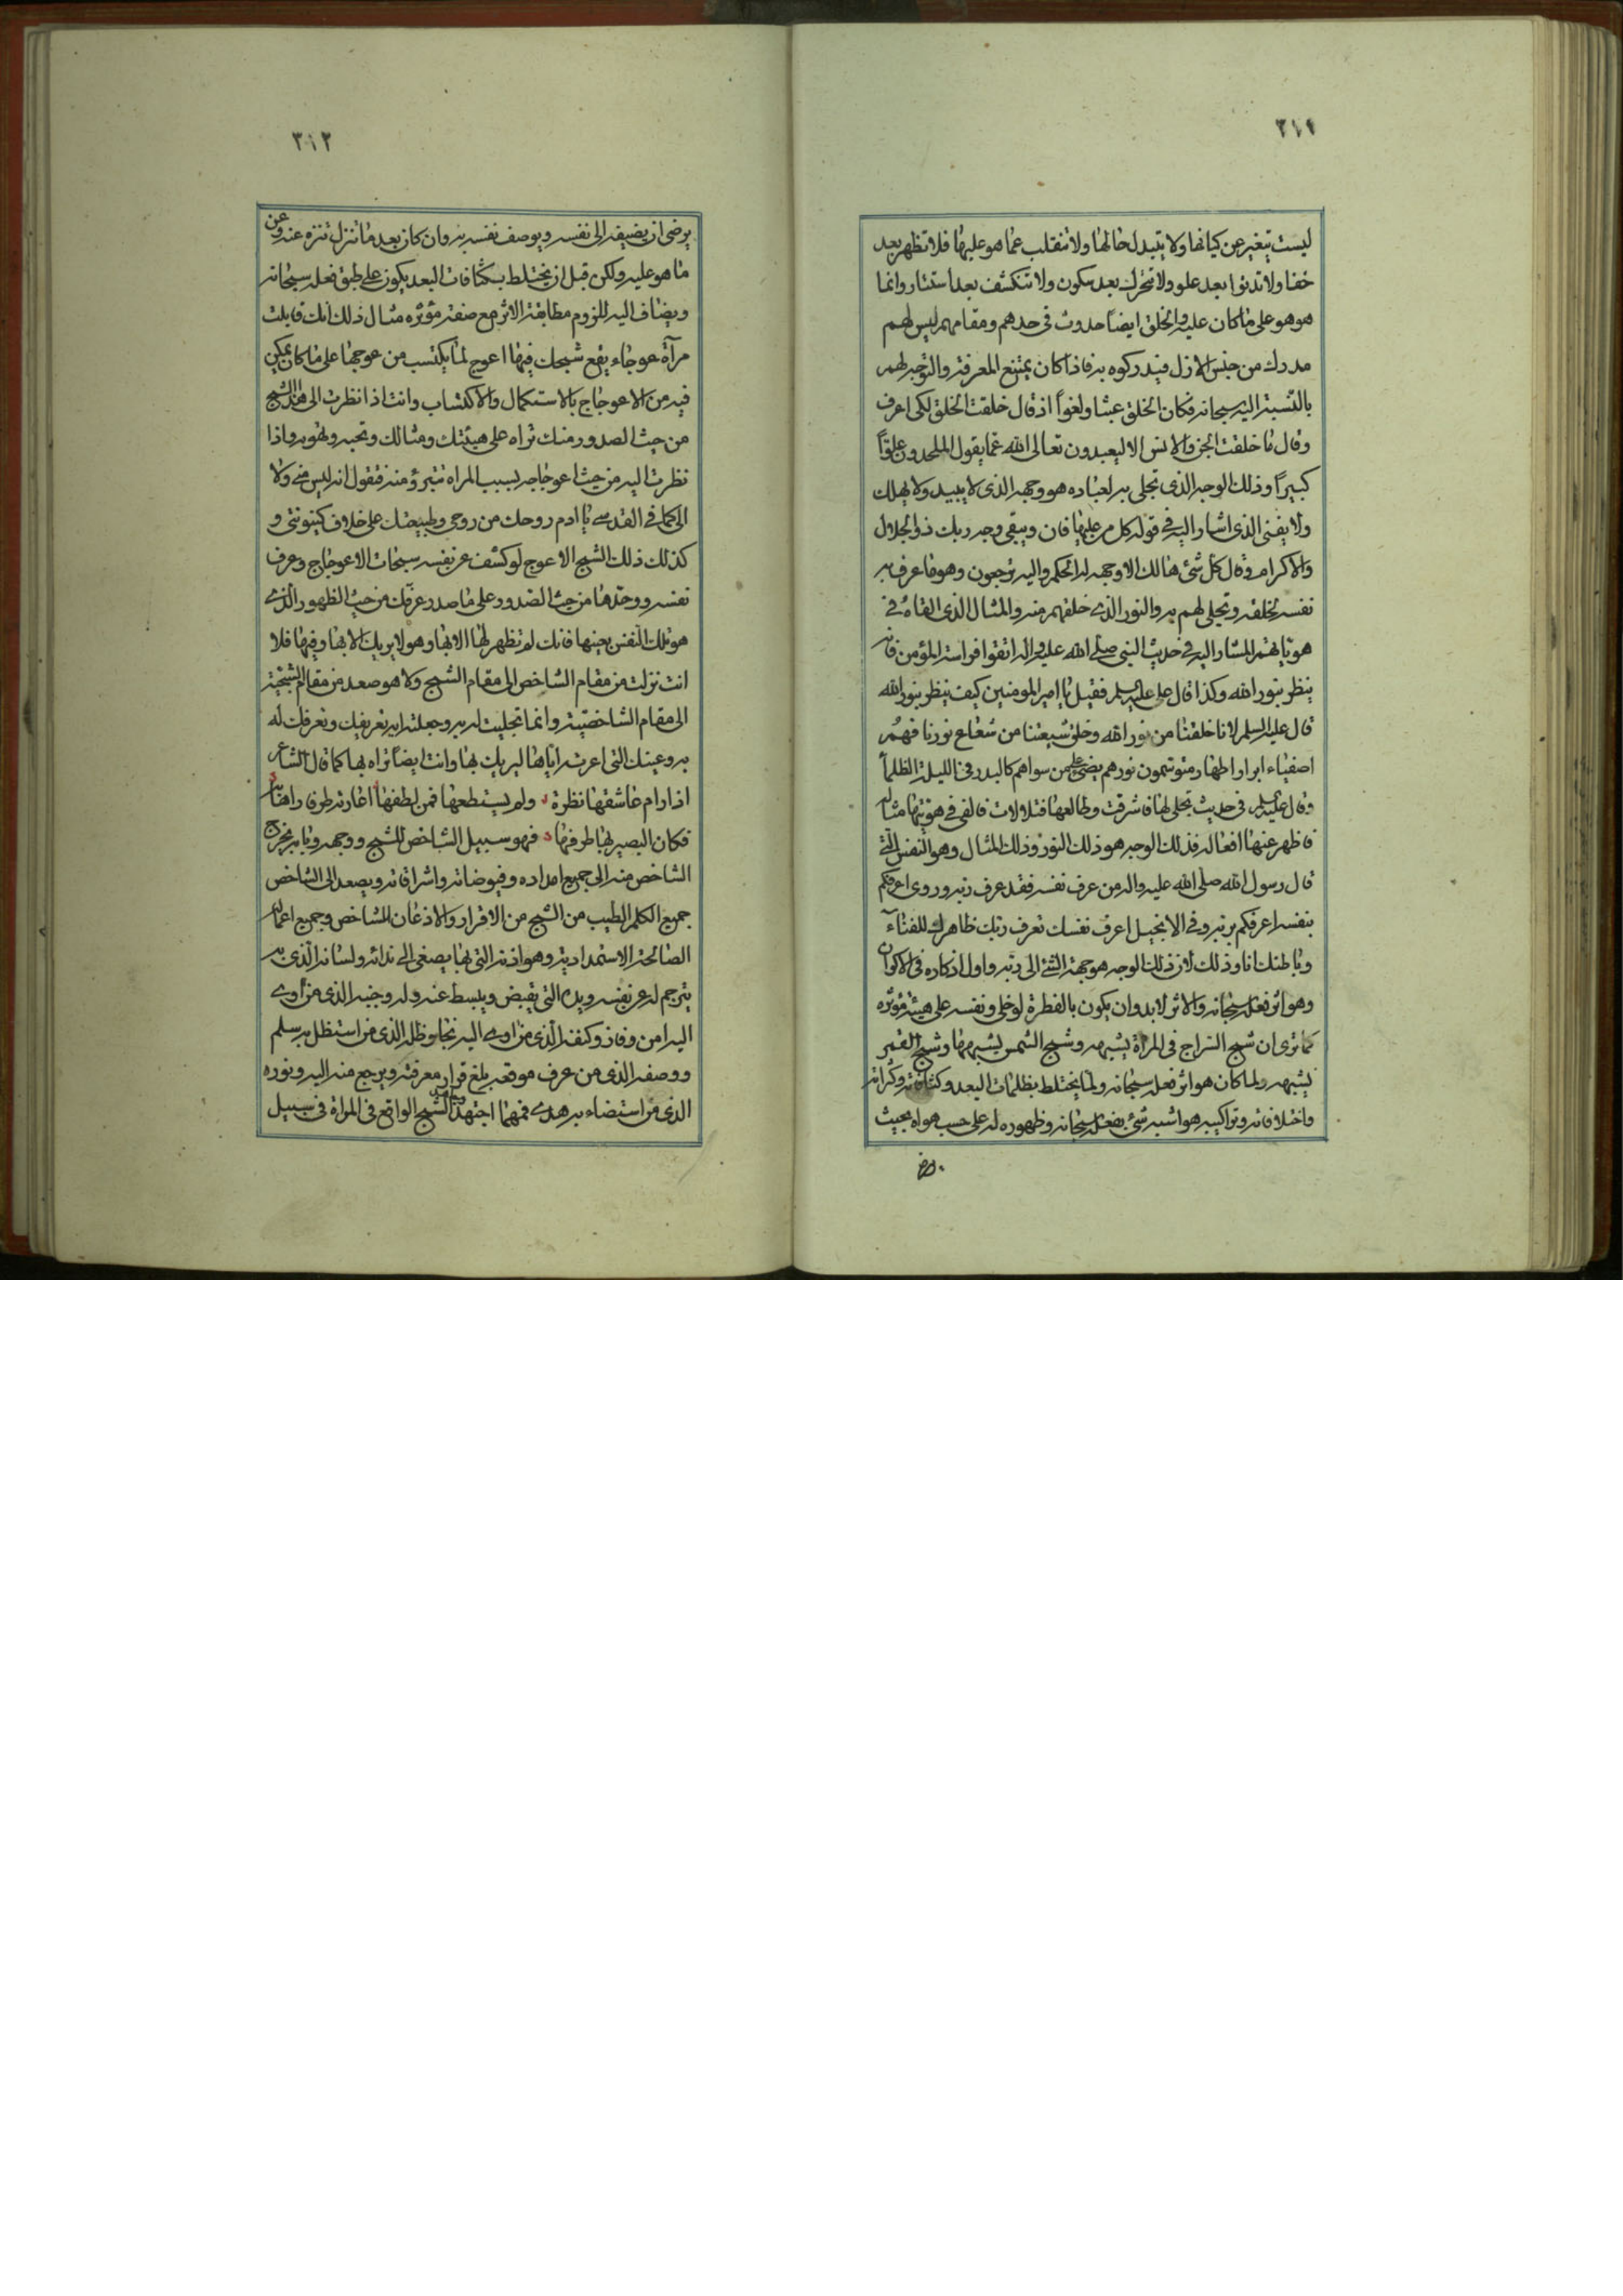 ٣١١
ليست تتغير عن كيانها ولا يتبدل حالها ولا تنقلب عما هو عليها فلا تظهر بعد
خفا ولا تدنوا بعد علو ولا تتحرك بعد سكون ولا تنكشف بعد استتار وانما
هو هو على ما كان عليه والخلق ايضاً حدوث في حدهم ومقامهم ليس لهم
مدرك من جنس الازل فيدركوه به فاذا كان يمتنع المعرفة والتوجه لهم
بالنسبة اليه سبحانه فكان الخلق عبثا ولغواً اذ قال خلقت الخلق لكى اعرف
وقال ما خلقت الجن والانس الا ليعبدون تعالى الله عما يقول الملحدون علوّاً
كبيراً وذلك الوجه الذى تجلى به لعباده هو وجهه الذى لا يبيد ولا يهلك
ولا يفنى الذى اشار اليه في قوله كل من عليها فان ويبقى وجه ربك ذو الجلال
والاكرام وقال كل شئ هالك الا وجهه له الحكم واليه ترجعون وهو ما عرف به
نفسه لخلقه وتجلى لهم به والنور الذى خلقهم منه والمثال الذى القاه في
هوياتهم المشار اليه في حديث النبى صلى الله عليه واله اتقوا فراسة المؤمن فانه
ينظر بنور الله وكذا قال على عليه السلم فقيل يا امير المومنين كيف ينظر بنور الله
قال عليه السلم لانا خلقنا من نور الله وخلق شيعتنا من شعاع نورنا فهم
اصفياء ابرار اطهار متوسمون نورهم يضئ على من سواهم كالبدر في الليلة الظلمآ
وقال عليه السلم في حديث تجلى لها فاشرقت وطالعها فتلالات فالقى في هويتها مثاله
فاظهر عنها افعاله فذلك الوجه هو ذلك النور وذلك المثال وهو النفس التى
قال رسول الله صلى الله عليه واله من عرف نفسه فقد عرف ربه وروى اعرفكم
بنفسه اعرفكم بربه وفي الانجيل اعرف نفسك تعرف ربك ظاهرك للفنآء
وباطنك انا وذلك لان ذلك الوجه هو جهة الشئ الى ربه واول اذكاره في الاكوان
وهو اثر فعله سبحانه والاثر لابد وان يكون بالفطرة لو خلى ونفسه على هيئة مؤثره
كما ترى ان شبح السراج في المراة يشبهه وشبح الشمس يشبهها وشبح القمر
يشبهه ولما كان هو اثر فعل سبحانه ولما يختلط بظلمات البعد وكثافاته وكثراته
واختلافاته وتراكيبه هو اشبه شئ بفعله سبحانه وظهوره له على حسب هواه بحيث
يرضى
٣١٢
يرضى ان يضيفه الى نفسه ويوصف نفسه به وان كان بعد ما تنزل تنزه عنه وعن
ما هو عليه ولكن قبل ان يختلط بكثافات البعد يكون على طبق فعله سبحانه
ويضاف اليه للزوم مطابقة الاثر مع صفة مؤثره مثال ذلك انك قابلت
مرآة عوجاء يقع شبحك فيها اعوج لما يكتسب من عوجها على ما كان يمكن
فيه من الاعوجاج بالاستكمال والاكتساب وانت اذا نظرت الى هذا الشبح
من حيث الصدور منك تراه على هيئتك ومثالك وتحبه وتهويه واذا
نظرت اليه من حيث اعوجاجه بسبب المراة تتبرؤ منه فتقول انه ليس منى ولا
الى كما في القدسى يا ادم روحك من روحى وطبيعتك على خلاف كينونتى و
كذلك ذلك الشبح الاعوج لو كشف عن نفسه سبحات الاعوجاج وعرف
نفسه ووحدها من حيث الصدور على ما صدر عرفك من حيث الظهور الذى
هو تلك النفس بعينها فانك لم تظهر لها الا بها وهو لا يريك الا بها وفيها فلا
انت نزلت من مقام الشاخص الى مقام الشبح ولا هو صعد من مقام الشبحية
الى مقام الشاخصية وانما تجليت له به وجعلته اية تعريفك وتعرفك له
به وعينك التى اعرته اياها ليريك بها وانت ايضاً تراه بها كما قال الشاعر
اذا رام عاشقها نظرة ولم يستطعها فمن لطفها اعارته طرفا راها به
فكان البصير بها طرفها فهو سبيل الشاخص للشبح ووجهه وبابه يخرج
الشاخص منه الى جميع امداده وفيوضاته واشراقاته ويصعد الى الشاخص
جميع الكلم الطيب من الشبح من الاقرار والاذعان للشاخص وجميع اعماله
الصالحة الاستمدادية وهو اذنه التى بها يصغى الى ندائه ولسانه الذى به
يترجم له عن نفسه ويده التى يقبض ويبسط عنه وله وجنبه الذى من اوى
اليه امن وفاز وكنفه الذى من اوى اليه نجا وظله الذى من استظل به سلم
ووصفه الذى من عرف موقعه بلغ قرار معرفته ويرجع منه اليه ونوره
الذى من استضاء به هدى فمهما اجتهد الشبح الواقع في المراة في سبيل